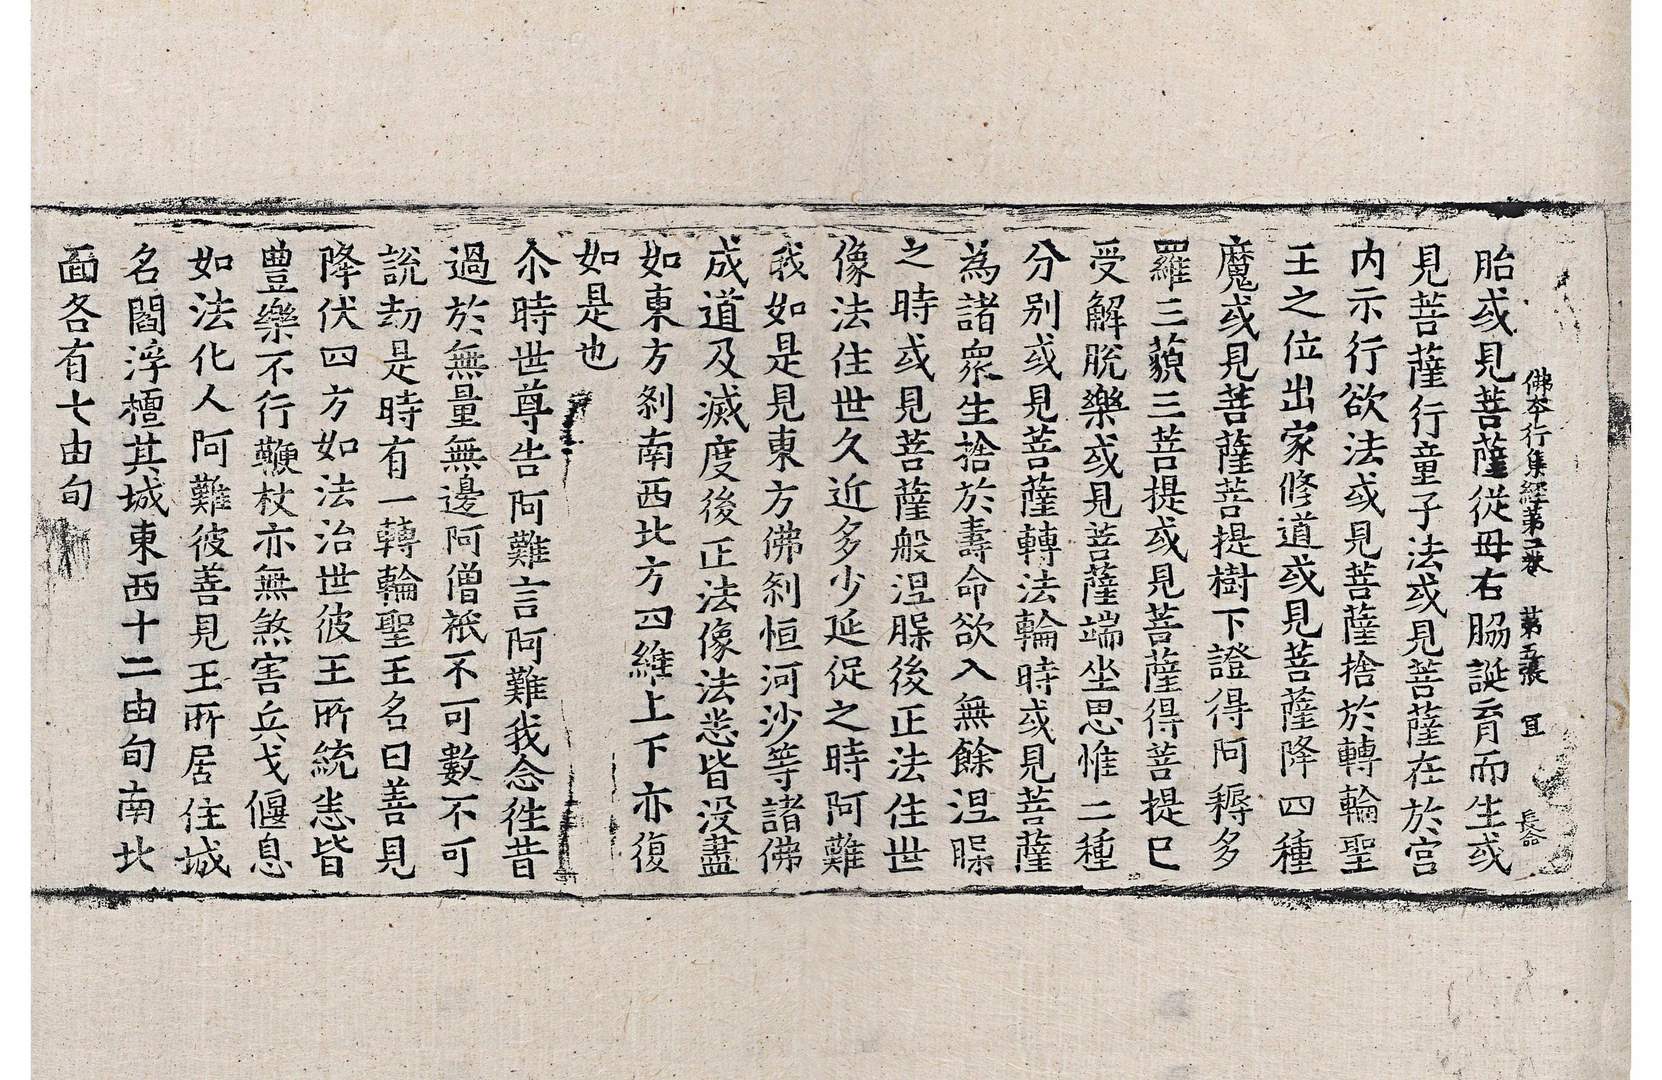 佛本行集經第二卷 第五張 宜 長命
胎或見菩薩從毋右脇誕育而生或
見菩薩行童子法或見菩薩在於宫
内示行欲法或見菩薩捨於轉輪聖
王之位出家修道或見菩薩降四種
魔或見菩薩菩提樹下證得阿耨多
羅三藐三菩提或見菩薩得菩提已
受解脫樂或見菩薩端坐思惟二種
分別或見菩薩轉法輪時或見菩薩
為諸衆生捨於壽命欲入無餘涅槃
之時或見菩薩般涅槃後正法住世
像法住世久近多少延促之時阿難
我如是見東方佛刹恒河沙等諸佛
成道及滅度後正法像法悉皆没盡
如東方刹南西北方四維上下亦復
如是也
尒時世尊告阿難言阿難我念徃昔
過於無量無邊阿僧祇不可數不可
說劫是時有一轉輪聖王名曰善見
降伏四方如法治世彼王所統悉皆
豊樂不行鞭杖亦無煞害兵戈偃息
如法化人阿難彼善見王所居住城
名閻浮檀其城東西十二由旬南北
面各有七由旬